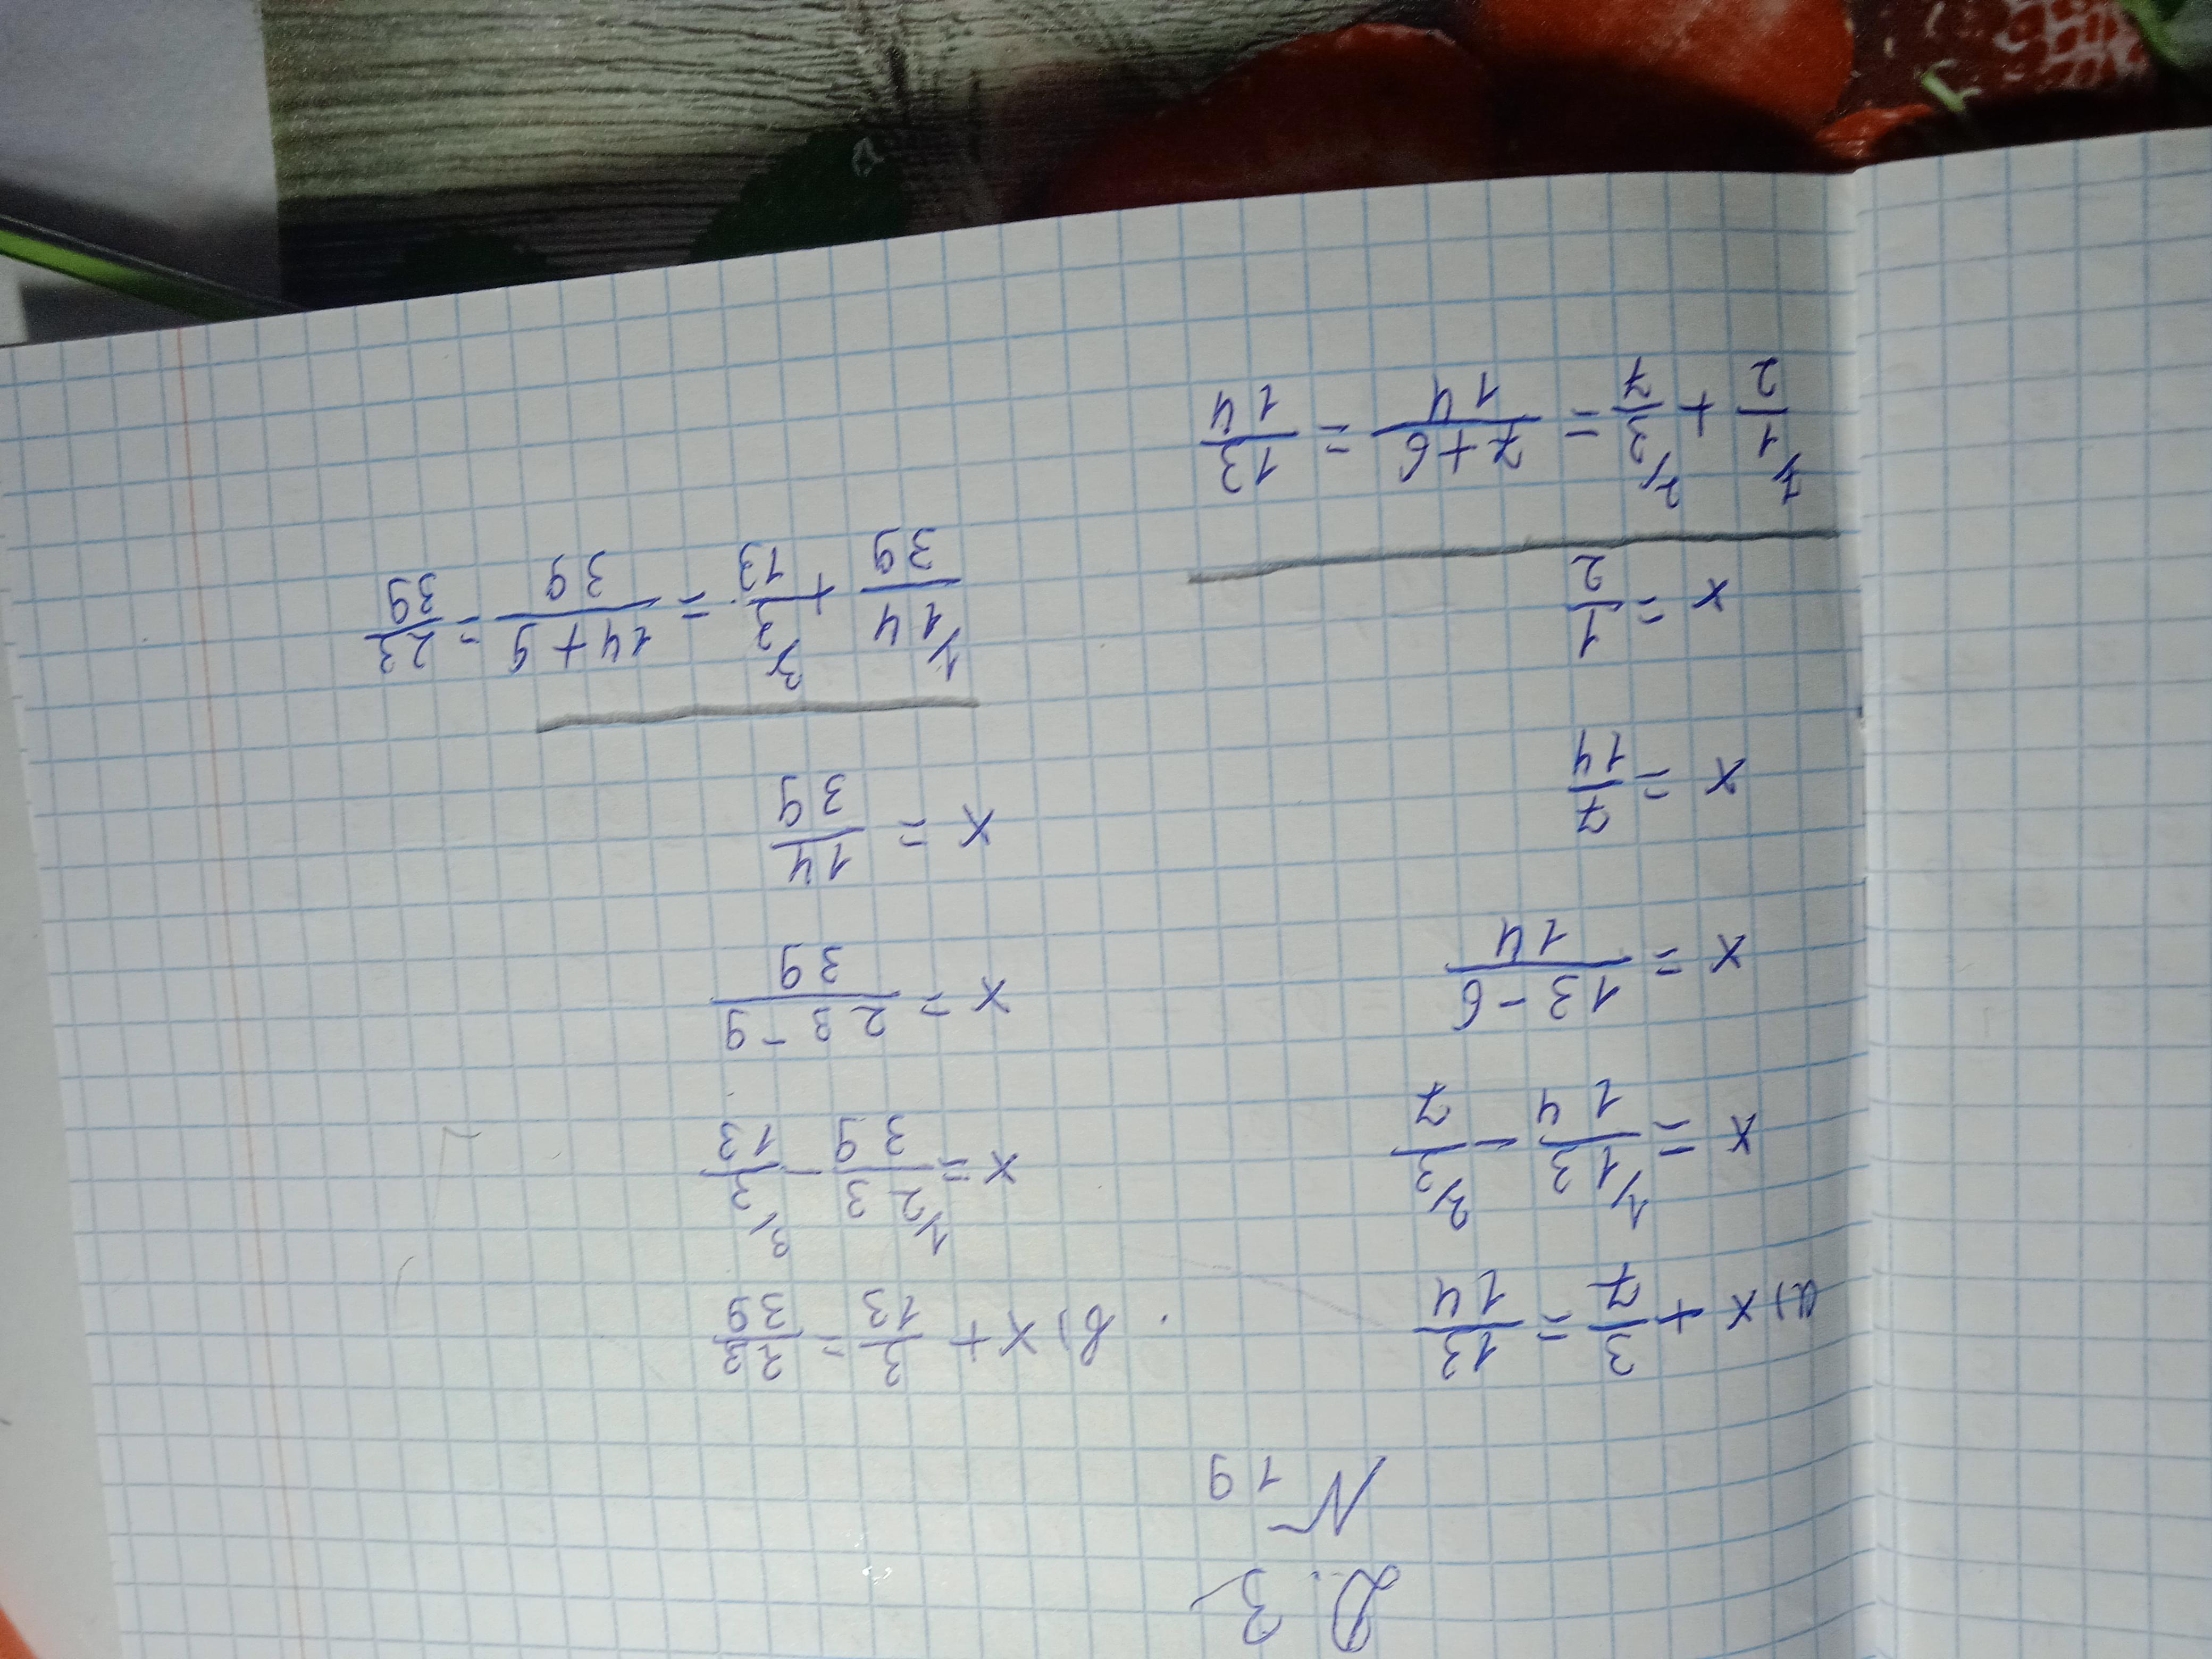 Д. З
N 19
а) x + 3/7 = 13/14
x = 13/14 \1 - 3/7 \2
x = 13 - 6/14
x = 7/14
x = 1/2
1/2 \7 + 3/7 \2 = 7 + 6/14 = 13/14
в) x + 3/13 = 23/39
x = 23/39 \1 - 3/13 \3
x = 23 - 9/39
x = 14/39
14/39 \1 + 3/13 \3 = 14 + 9/39 = 23/39